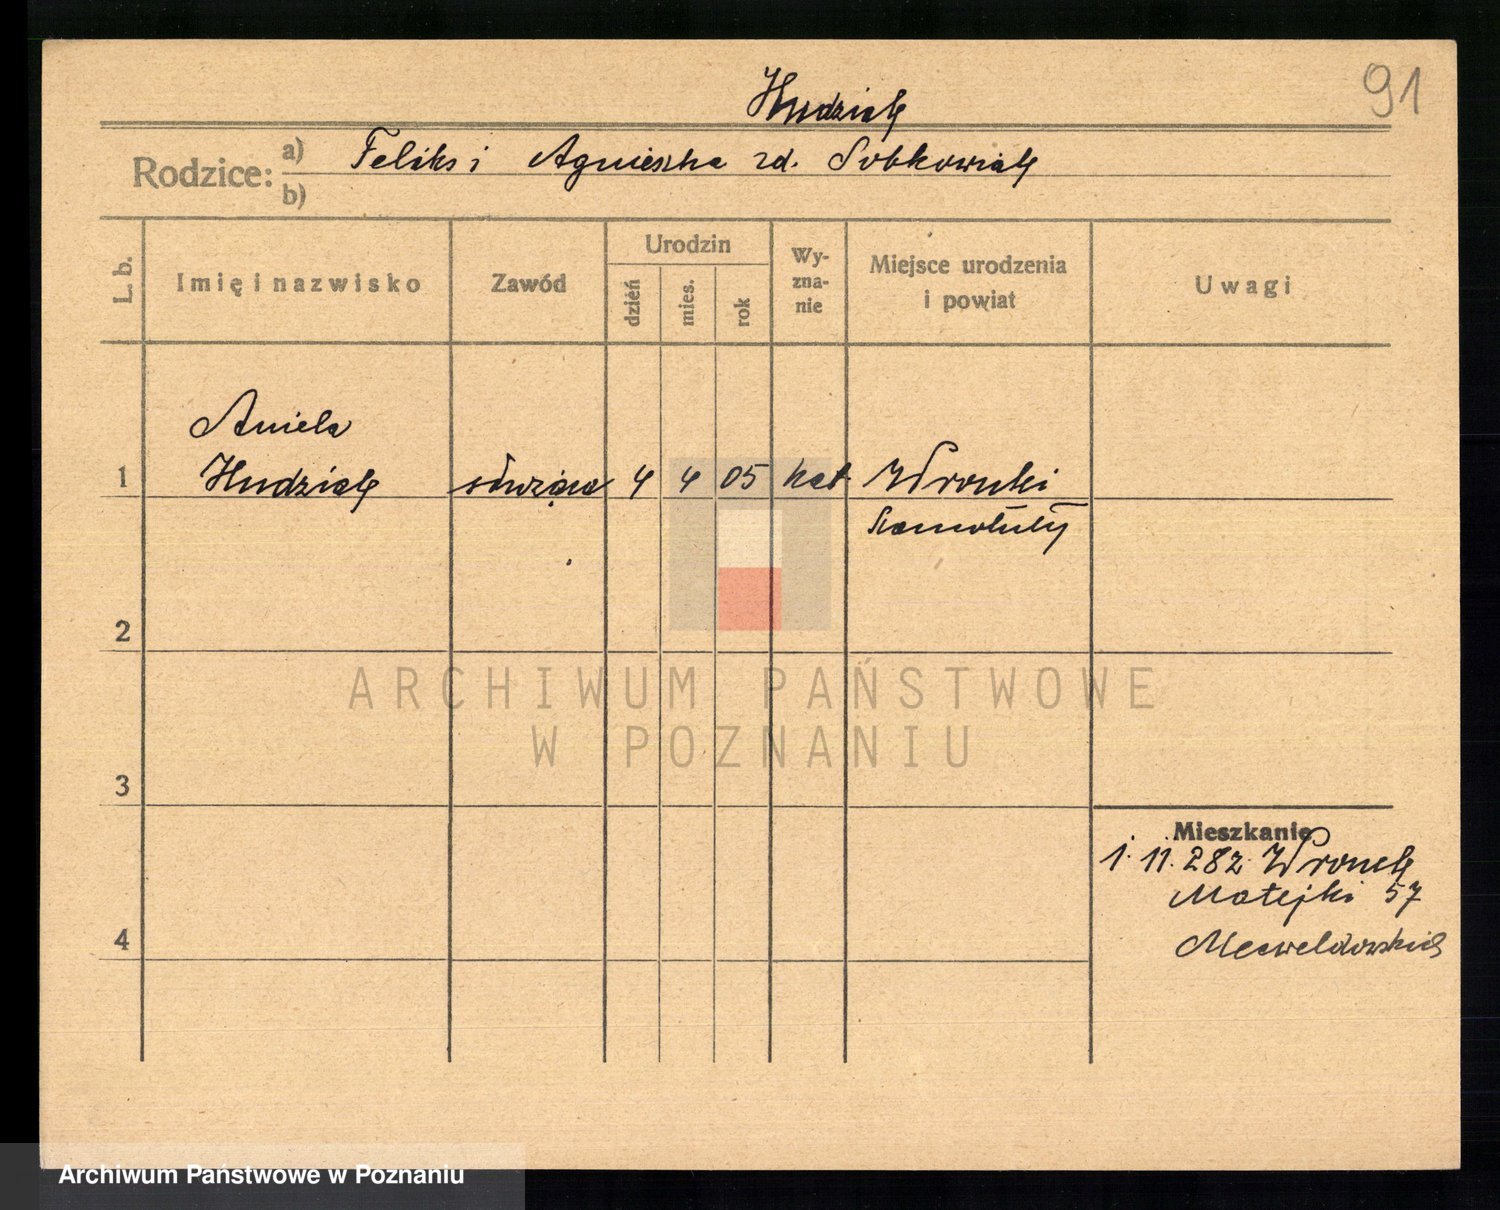 91
Hudziak
Rodzice: a) Feliks i Agnieszka zd. Sobkowiak
b)
L. b.
Imię i nazwisko
Zawód
Urodzin
dzień
mies.
rok
Wy-
zna-
nie
Miejsce urodzenia
i powiat
Uwagi
Aniela
1 Hudziak służąca 4 4 05 kat Wronki
Szamotuły
2
ARCHIWUM PAŃSTWOWE
W POZNANIU
3
Mieszkanie
1. 11. 282
Matejki 57
4
Archiwum Państwowe w Poznaniu